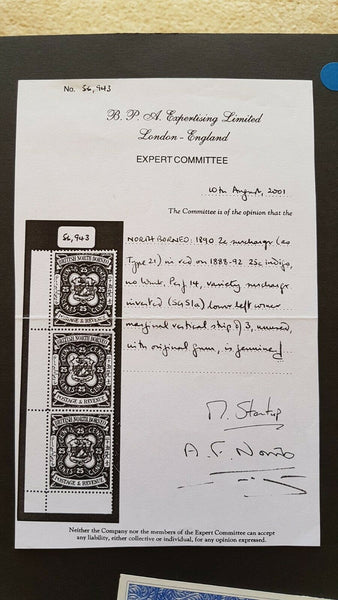 No. 56,943
B. P. A. Expertising Limited
London - England
EXPERT COMMITTEE
10th August, 2001
The Committee is of the opinion that the
NORTH BORNEO: 1890 2c surcharge (as
Type 21) in red on 1888-92 25c indigo,
no wmk. Perf 14, variety surcharge
inverted (SG51a) lower left corner
marginal vertical strip of 3, unused,
with original gum, is genuine
56,943
BRITISH NORTH BORNEO
25 CENTS 25
POSTAGE & REVENUE
BRITISH NORTH BORNEO
25 CENTS 25
POSTAGE & REVENUE
BRITISH NORTH BORNEO
25 CENTS 25
POSTAGE & REVENUE
M. Startup
A. F. Norris
Neither the Company nor the members of the Expert Committee can accept
any liability, either collective or individual, for any opinion expressed.